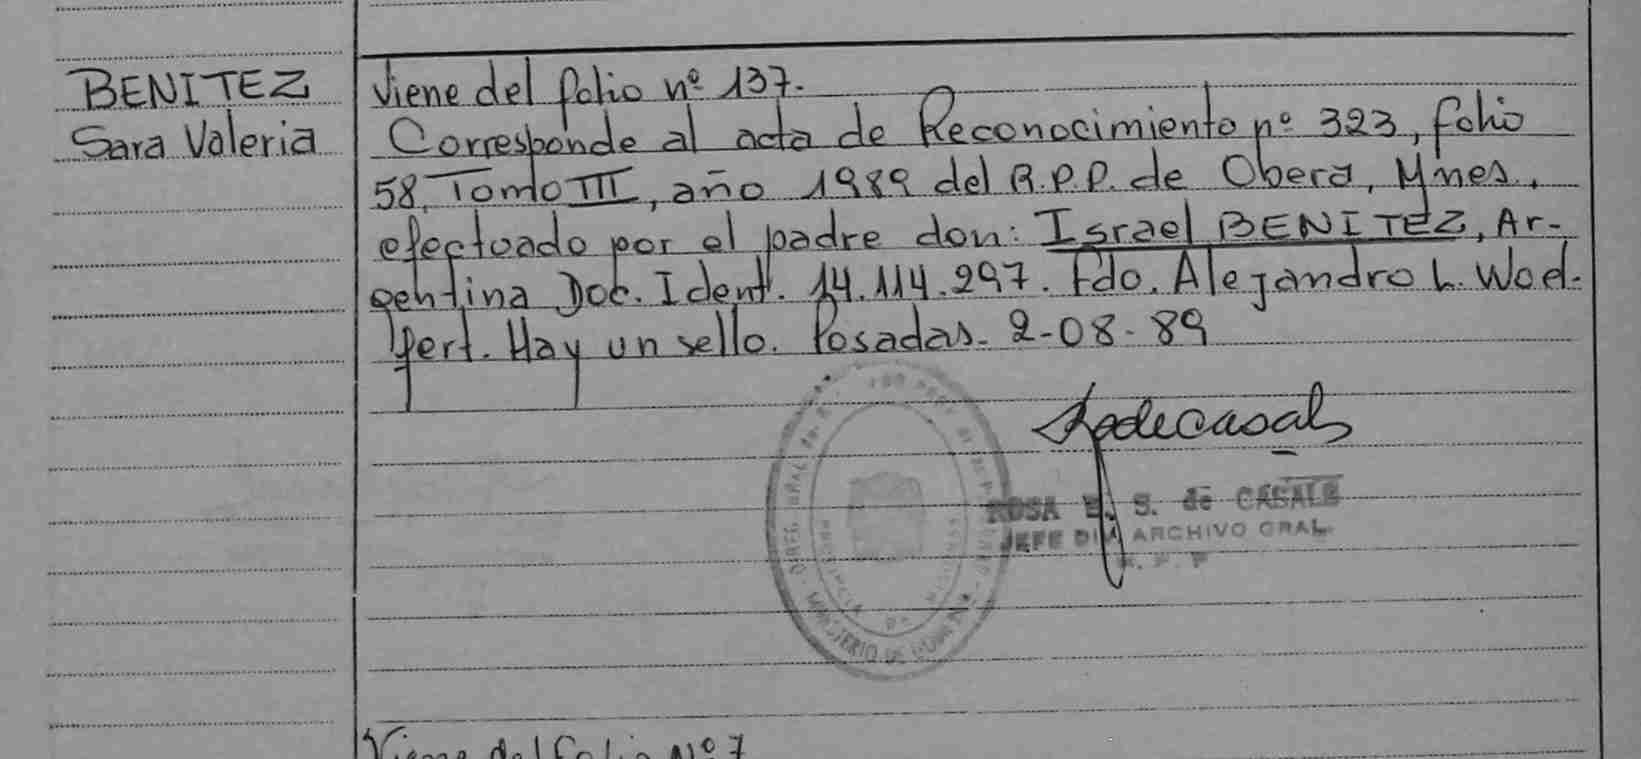 BENITEZ
Sara Valeria
Viene del folio nº 137.
Corresponde al acta de Reconocimiento nº 323, folio
58, Tomo III, año 1989 del R.P.P. de Obera, Mnes,
efectuado por el padre don: Israel BENITEZ, Ar-
gentina Doc. Ident. 14.114.297. Fdo. Alejandro L. Wod-
fert. Hay un sello. Posadas. 2-08-89
ROSA E. S. de CASALS
JEFE DIV. ARCHIVO GRAL.
MINISTERIO DE
Viene del folio Nº 7